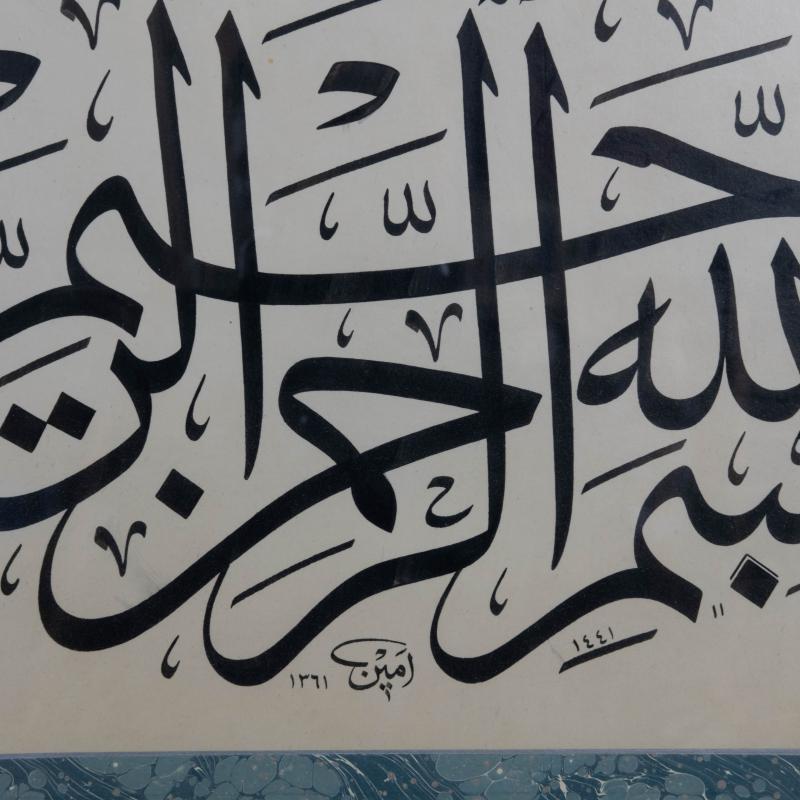 بسم الله الرحمن الرحيم
١٤٤١
امين ١٣٦١